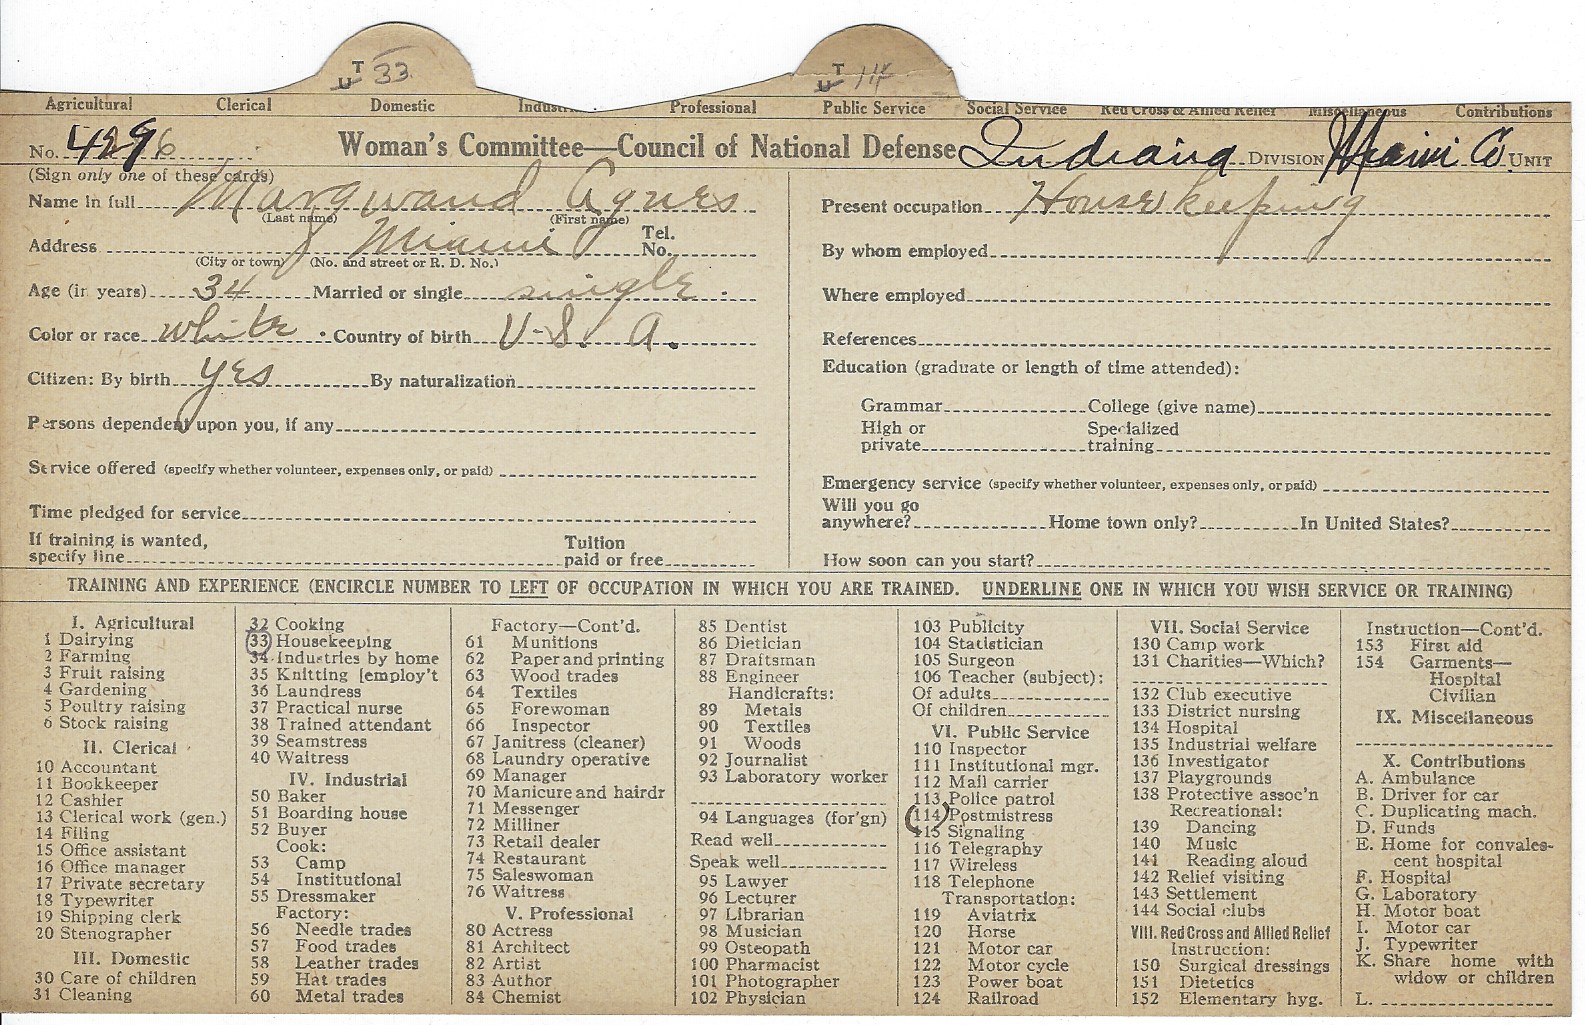 T U 33 T U 114
Agricultural Clerical Domestic Industrial Professional Public Service Social Service Red Cross & Allied Relief Miscellaneous Contributions
No. 4296 Woman's Committee—Council of National Defense Indiana DIVISION Miami Co. UNIT
(Sign only one of these cards)
Name in full Marqwand Agnes
(Last name) (First name)
Address Miami Tel. No.
(City or town) (No. and street or R. D. No.)
Age (in years) 34 Married or single single
Color or race white Country of birth U-S. A.
Citizen: By birth yes By naturalization
Persons dependent upon you, if any
Service offered (specify whether volunteer, expenses only, or paid)
Time pledged for service
If training is wanted,
specify line
Tuition
paid or free
Present occupation Housekeeping
By whom employed
Where employed
References
Education (graduate or length of time attended):
Grammar College (give name)
High or private Specialized training
Emergency service (specify whether volunteer, expenses only, or paid)
Will you go
anywhere? Home town only? In United States?
How soon can you start?
TRAINING AND EXPERIENCE (ENCIRCLE NUMBER TO LEFT OF OCCUPATION IN WHICH YOU ARE TRAINED. UNDERLINE ONE IN WHICH YOU WISH SERVICE OR TRAINING)
I. Agricultural
1 Dairying
2 Farming
3 Fruit raising
4 Gardening
5 Poultry raising
6 Stock raising
II. Clerical
10 Accountant
11 Bookkeeper
12 Cashier
13 Clerical work (gen.)
14 Filing
15 Office assistant
16 Office manager
17 Private secretary
18 Typewriter
19 Shipping clerk
20 Stenographer
III. Domestic
30 Care of children
31 Cleaning
32 Cooking
33 Housekeeping
34 Industries by home
35 Knitting [employ't
36 Laundress
37 Practical nurse
38 Trained attendant
39 Seamstress
40 Waitress
IV. Industrial
50 Baker
51 Boarding house
52 Buyer
Cook:
53 Camp
54 Institutional
55 Dressmaker
Factory:
56 Needle trades
57 Food trades
58 Leather trades
59 Hat trades
60 Metal trades
Factory—Cont'd.
61 Munitions
62 Paper and printing
63 Wood trades
64 Textiles
65 Forewoman
66 Inspector
67 Janitress (cleaner)
68 Laundry operative
69 Manager
70 Manicure and hairdr
71 Messenger
72 Milliner
73 Retail dealer
74 Restaurant
75 Saleswoman
76 Waitress
V. Professional
80 Actress
81 Architect
82 Artist
83 Author
84 Chemist
85 Dentist
86 Dietician
87 Draftsman
88 Engineer
Handicrafts:
89 Metals
90 Textiles
91 Woods
92 Journalist
93 Laboratory worker
94 Languages (for'gn)
Read well
Speak well
95 Lawyer
96 Lecturer
97 Librarian
98 Musician
99 Osteopath
100 Pharmacist
101 Photographer
102 Physician
103 Publicity
104 Statistician
105 Surgeon
106 Teacher (subject):
Of adults
Of children
VI. Public Service
110 Inspector
111 Institutional mgr.
112 Mail carrier
113 Police patrol
114 Postmistress
115 Signaling
116 Telegraphy
117 Wireless
118 Telephone
Transportation:
119 Aviatrix
120 Horse
121 Motor car
122 Motor cycle
123 Power boat
124 Railroad
VII. Social Service
130 Camp work
131 Charities—Which?
132 Club executive
133 District nursing
134 Hospital
135 Industrial welfare
136 Investigator
137 Playgrounds
138 Protective assoc'n
Recreational:
139 Dancing
140 Music
141 Reading aloud
142 Relief visiting
143 Settlement
144 Social clubs
VIII. Red Cross and Allied Relief
Instruction:
150 Surgical dressings
151 Dietetics
152 Elementary hyg.
Instruction—Cont'd.
153 First aid
154 Garments—
Hospital
Civilian
IX. Miscellaneous
X. Contributions
A. Ambulance
B. Driver for car
C. Duplicating mach.
D. Funds
E. Home for convales-
cent hospital
F. Hospital
G. Laboratory
H. Motor boat
I. Motor car
J. Typewriter
K. Share home with
widow or children
L.